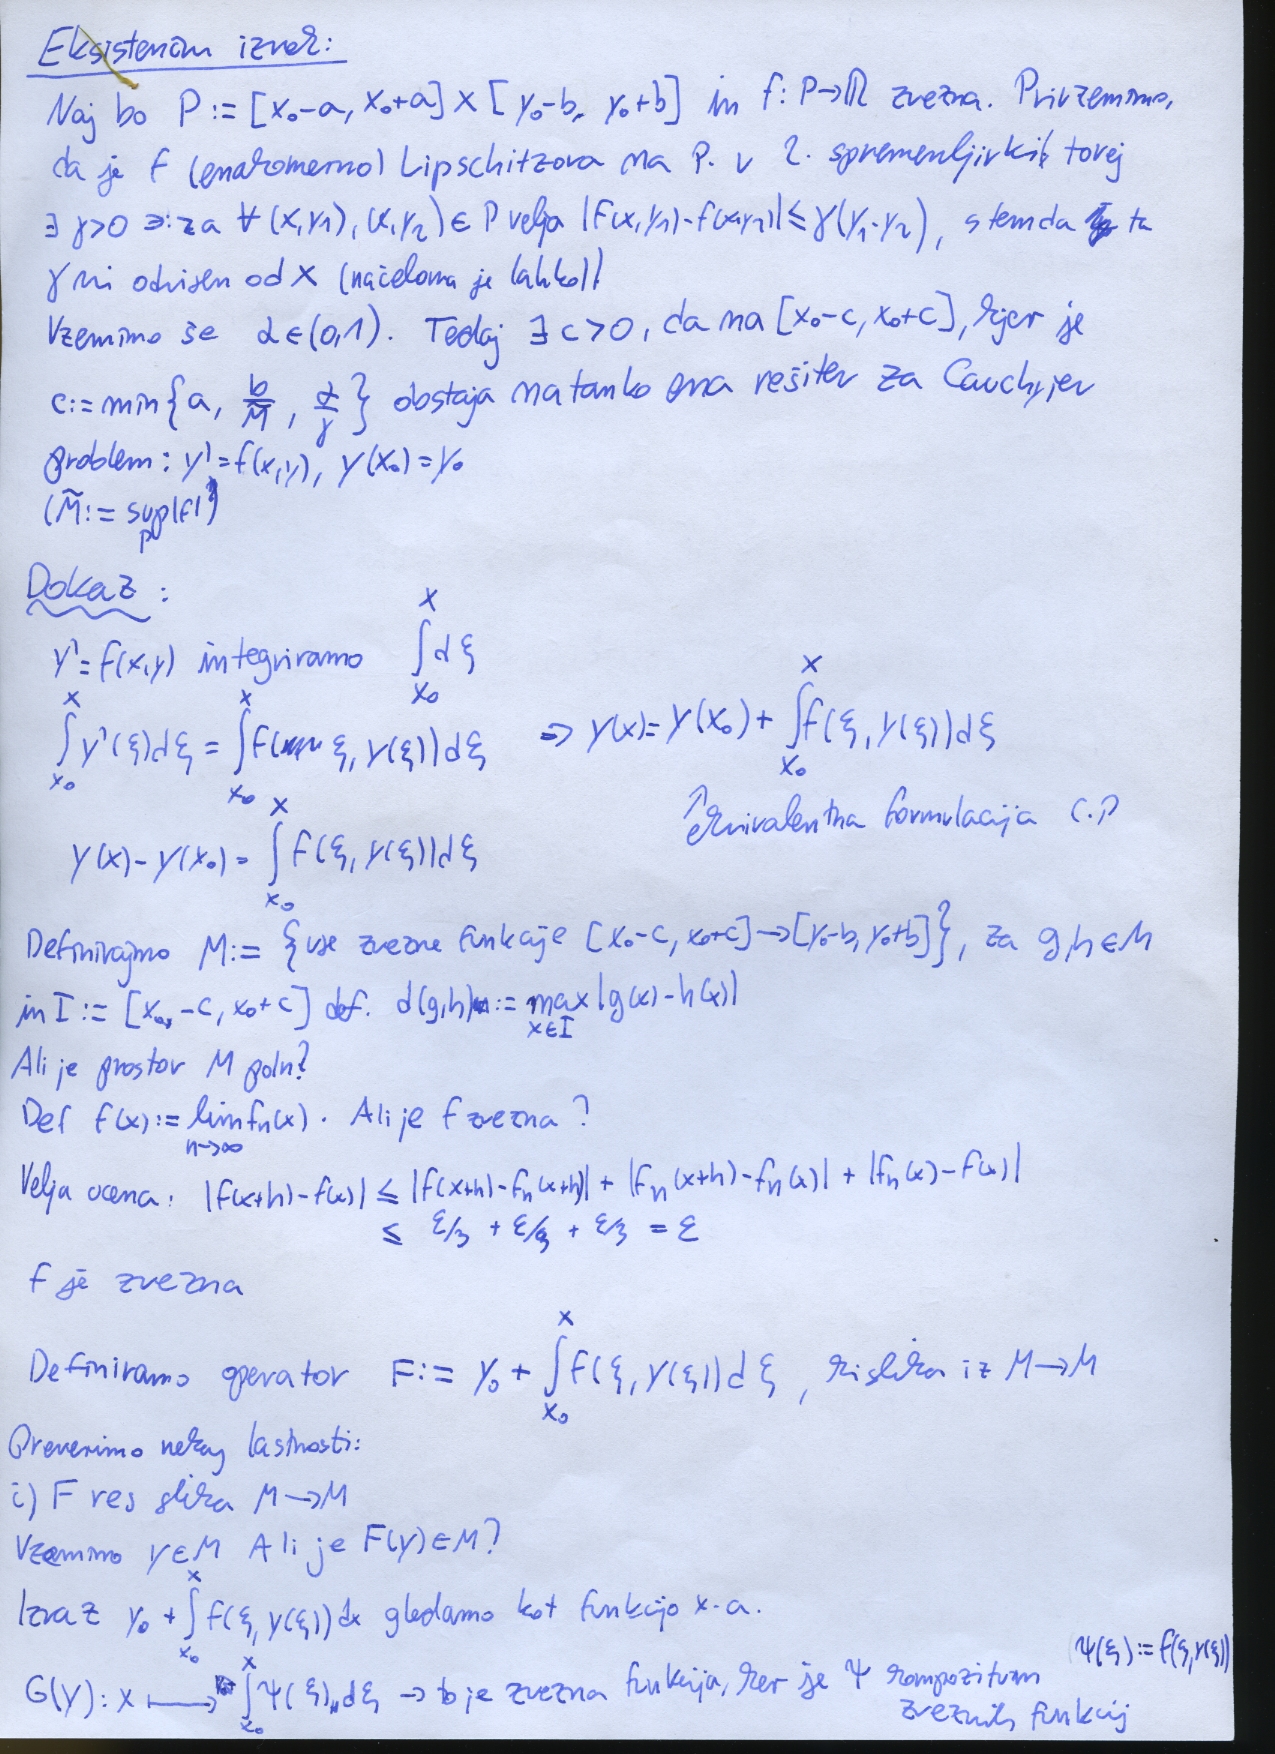 Eksistenčni izrek:
Naj bo P := [x₀-a, x₀+a] × [y₀-b, y₀+b] in f: P→ℝ zvezna. Privzemimo,
da je f (enakomerno) Lipschitzova na P. v 2. spremenljivki, torej
∃ γ>0 ∋: za ∀ (x,y₁), (x,y₂) ∈ P velja |f(x,y₁)-f(x,y₂)| ≤ γ(y₁-y₂), s tem da ta
γ ni odvisen od x (načeloma je lahko)!
Vzemimo še α ∈ (0,1). Tedaj ∃ c>0, da na [x₀-c, x₀+c], kjer je
c := min{a, b/M̃, α/γ} obstaja natanko ena rešitev za Cauchyjev
problem: y' = f(x,y), y(x₀) = y₀
(M̃ := sup_P |f|)
Dokaz:
y' = f(x,y) integriramo ∫_{x₀}^{x} dξ
∫_{x₀}^{x} y'(ξ)dξ = ∫_{x₀}^{x} f(ξ, y(ξ))dξ ⇒ y(x) = y(x₀) + ∫_{x₀}^{x} f(ξ, y(ξ))dξ
↑ ekvivalentna formulacija C.P
y(x) - y(x₀) = ∫_{x₀}^{x} f(ξ, y(ξ))dξ
Definirajmo M := {vse zvezne funkcije [x₀-c, x₀+c] → [y₀-b, y₀+b]}, za g,h ∈ M
in I := [x₀-c, x₀+c] def. d(g,h) := max_{x∈I} |g(x) - h(x)|
Ali je prostor M poln?
Def f(x) := lim_{n→∞} fₙ(x). Ali je f zvezna?
Velja ocena: |f(x+h) - f(x)| ≤ |f(x+h) - fₙ(x+h)| + |fₙ(x+h) - fₙ(x)| + |fₙ(x) - f(x)|
≤ ε/3 + ε/3 + ε/3 = ε
f je zvezna
Definiramo operator F := y₀ + ∫_{x₀}^{x} f(ξ, y(ξ))dξ, ki slika iz M→M
Preverimo nekaj lastnosti:
i) F res slika M→M
Vzemimo y∈M Ali je F(y)∈M?
Izraz y₀ + ∫_{x₀}^{x} f(ξ, y(ξ))dx gledamo kot funkcijo x-a.
Ψ(ξ) := f(ξ, y(ξ))
G(y): x ⟼ ∫_{x₀}^{x} Ψ(ξ)dξ → to je zvezna funkcija, ker je Ψ kompozitum
zveznih funkcij